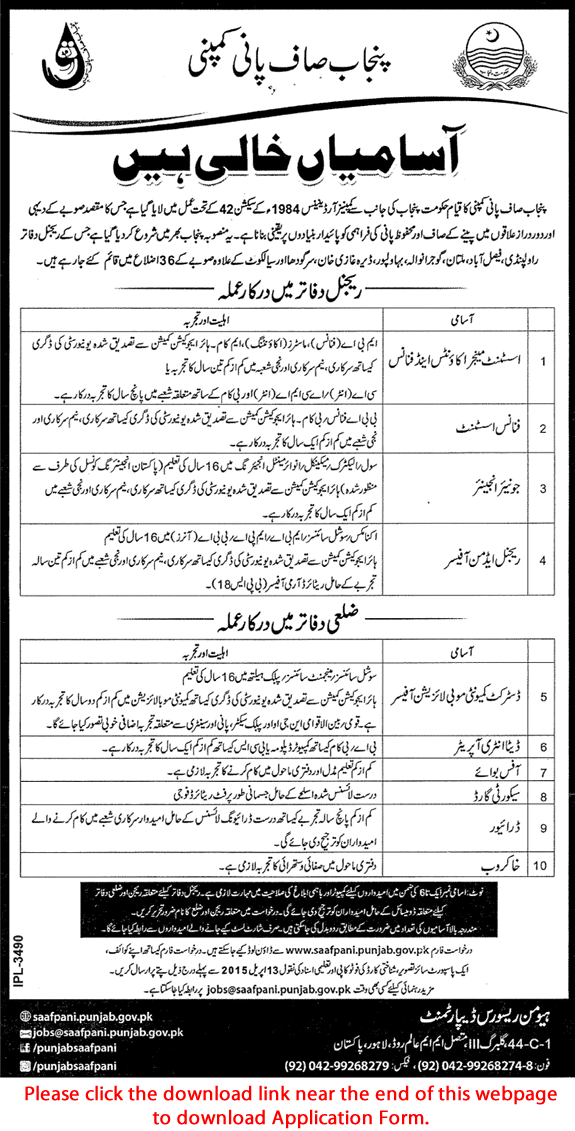 پنجاب صاف پانی کمپنی
آسامیاں خالی ہیں
پنجاب صاف پانی کمپنی کا قیام حکومت پنجاب کی جانب سے کمپنیز آرڈیننس 1984ء کے سیکشن 42 کے تحت عمل میں لایا گیا ہے جس کا مقصد صوبے کے دیہی
اور دور دراز علاقوں میں پینے کے صاف اور محفوظ پانی کی فراہمی کو پائیدار بنیادوں پر یقینی بنانا ہے۔ یہ منصوبہ پنجاب بھر میں شروع کر دیا گیا ہے جس کے ریجنل دفاتر
راولپنڈی، فیصل آباد، ملتان، گوجرانوالہ، بہاولپور، ڈیرہ غازی خان، سرگودھا اور سیالکوٹ کے علاوہ صوبے کے 36 اضلاع میں قائم کئے جا رہے ہیں۔
ریجنل دفاتر میں درکار عملہ
آسامی اہلیت اور تجربہ
1 اسسٹنٹ منیجر اکاؤنٹس اینڈ فنانس
ایم بی اے (فنانس)، ماسٹرز (اکاؤنٹنگ)، ایم کام۔ ہائر ایجوکیشن کمیشن سے تصدیق شدہ یونیورسٹی کی ڈگری
کیساتھ سرکاری، نیم سرکاری اور نجی شعبہ میں کم از کم تین سال کا تجربہ یا
سی اے (انٹر)/ اے سی ایم اے (انٹر) اور بی کام کے ساتھ متعلقہ شعبے میں پانچ سال کا تجربہ درکار ہے۔
2 فنانس اسسٹنٹ
بی بی اے فنانس/ بی کام۔ ہائر ایجوکیشن کمیشن سے تصدیق شدہ یونیورسٹی کی ڈگری کیساتھ سرکاری، نیم سرکاری اور
نجی شعبے میں کم از کم ایک سال کا تجربہ درکار ہے۔
3 جونیئر انجینئر
سول/ الیکٹریکل/ مکینیکل/ انوائرمینٹل انجینئرنگ میں 16 سال کی تعلیم (پاکستان انجینئرنگ کونسل کی طرف سے
منظور شدہ) ہائر ایجوکیشن کمیشن سے تصدیق شدہ یونیورسٹی کی ڈگری کیساتھ سرکاری، نیم سرکاری اور نجی شعبے میں
کم از کم ایک سال کا تجربہ درکار ہے۔
4 ریجنل ایڈمن آفیسر
اکنامکس/ سوشل سائنسز/ ایم بی اے/ ایم پی اے/ بی بی اے (آنرز) میں 16 سال کی تعلیم
ہائر ایجوکیشن کمیشن سے تصدیق شدہ یونیورسٹی کی ڈگری کیساتھ سرکاری، نیم سرکاری اور نجی شعبے میں کم از کم تین سالہ
تجربے کے حامل ریٹائرڈ آرمی آفیسر (بی پی ایس 18)۔
ضلعی دفاتر میں درکار عملہ
آسامی اہلیت اور تجربہ
5 ڈسٹرکٹ کمیونٹی موبلائزیشن آفیسر
سوشل سائنسز/ مینجمنٹ سائنسز/ پبلک ہیلتھ میں 16 سال کی تعلیم
ہائر ایجوکیشن کمیشن سے تصدیق شدہ یونیورسٹی کی ڈگری کیساتھ کمیونٹی موبلائزیشن میں کم از کم دو سال کا تجربہ درکار
ہے۔ قومی/ بین الاقوامی این جی او اور پبلک سیکٹر، پانی اور سینٹری سے متعلقہ تجربہ اضافی خوبی تصور کیا جائے گا۔
6 ڈیٹا انٹری آپریٹر
بی اے/ بی کام کیساتھ کمپیوٹر ڈپلومہ یا بی سی ایس کیساتھ کم از کم ایک سال کا تجربہ درکار ہے۔
7 آفس بوائے
کم از کم تعلیم مڈل اور دفتری ماحول میں کام کرنے کا تجربہ لازمی ہے۔
8 سیکورٹی گارڈ
درست لائسنس شدہ اسلحے کے حامل جسمانی طور پر فٹ ریٹائرڈ فوجی
9 ڈرائیور
کم از کم پانچ سالہ تجربے کیساتھ درست ڈرائیونگ لائسنس کے حامل امیدوار سرکاری شعبے میں کام کرنے والے
امیدواران کو ترجیح دی جائے گی۔
10 خاکروب
دفتری ماحول میں صفائی و ستھرائی کا تجربہ لازمی ہے۔
نوٹ: آسامی نمبر ایک تا 6 کی ضمن میں امیدواروں کیلئے کمپیوٹر اور باہمی ابلاغ کی صلاحیت میں مہارت لازمی ہے۔ ریجنل دفاتر کیلئے متعلقہ ریجن اور ضلعی دفاتر
کیلئے متعلقہ ڈومیسائل کے حامل امیدواران کو ترجیح دی جائے گی۔ درخواست میں متعلقہ ریجن اور ضلع کا نام ضرور تحریر کریں۔
مندرجہ بالا آسامیوں کی تعداد میں ضرورت کے مطابق ردوبدل کی جا سکتی ہیں۔ صرف شارٹ لسٹ کیے جانے والے امیدواروں سے رابطہ کیا جائے گا۔
درخواست فارم www.saafpani.punjab.gov.pk سے ڈاؤن لوڈ کیے جا سکتے ہیں۔ درخواست فارم کیساتھ اپنے کوائف،
ایک پاسپورٹ سائز تصویر، شناختی کارڈ کی فوٹو کاپی اور تعلیمی اسناد کی نقول 13 اپریل 2015 سے پہلے درج ذیل پتے پر ارسال کریں۔
مزید رہنمائی کیلئے کسی بھی وقت jobs@saafpani.punjab.gov.pk پر رابطہ کیا جا سکتا ہے۔
IPL-3490
ہیومن ریسورس ڈیپارٹمنٹ
44-C-1، گلبرگ III، متصل ایم ایم عالم روڈ، لاہور، پاکستان
فون: 8-99268274-042 (92)، فیکس: 99268279-042 (92)
saafpani.punjab.gov.pk
jobs@saafpani.punjab.gov.pk
/punjabsaafpani
/punjabsaafpani
Please click the download link near the end of this webpage
to download Application Form.